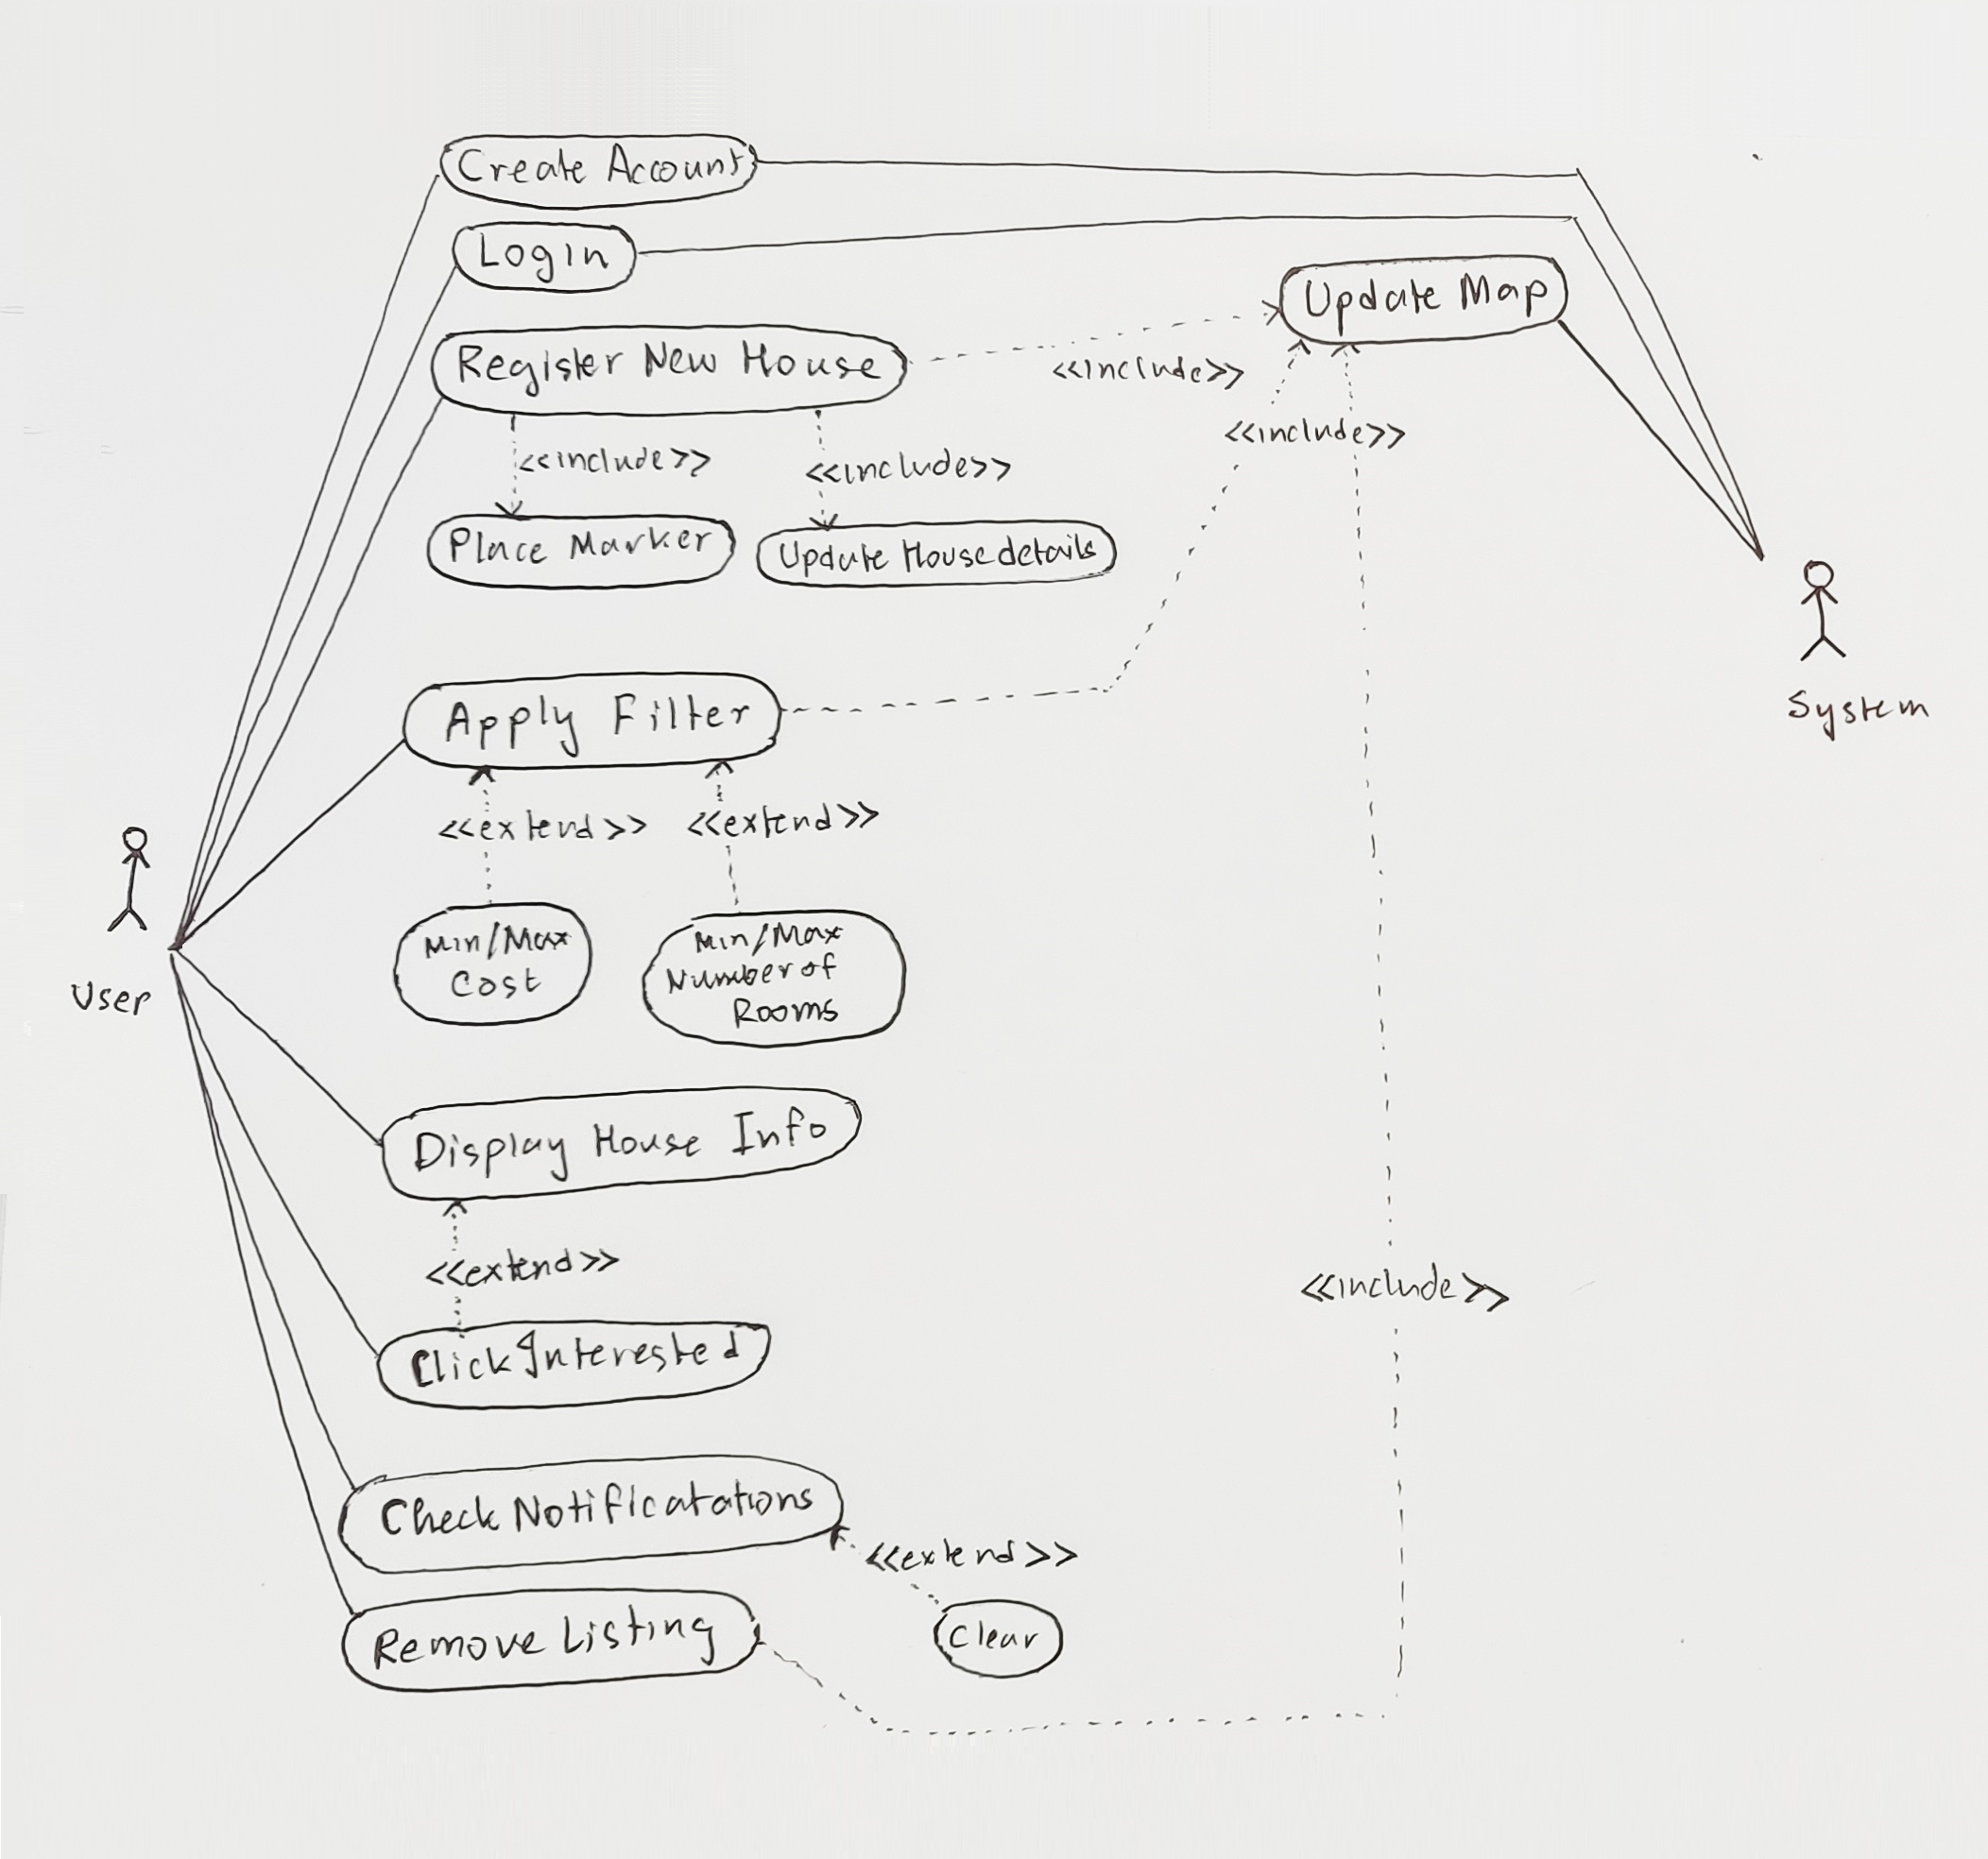 Create Account
Login
Update Map
Register New House
<<include>>
<<include>>
<<include>>
<<include>>
Place Marker
Update House details
System
Apply Filter
<<extend>>
<<extend>>
Min/Max
Cost
Min/Max
Number of
Rooms
User
Display House Info
<<extend>>
<<include>>
Click Interested
Check Notificatations
<<extend>>
Clear
Remove Listing